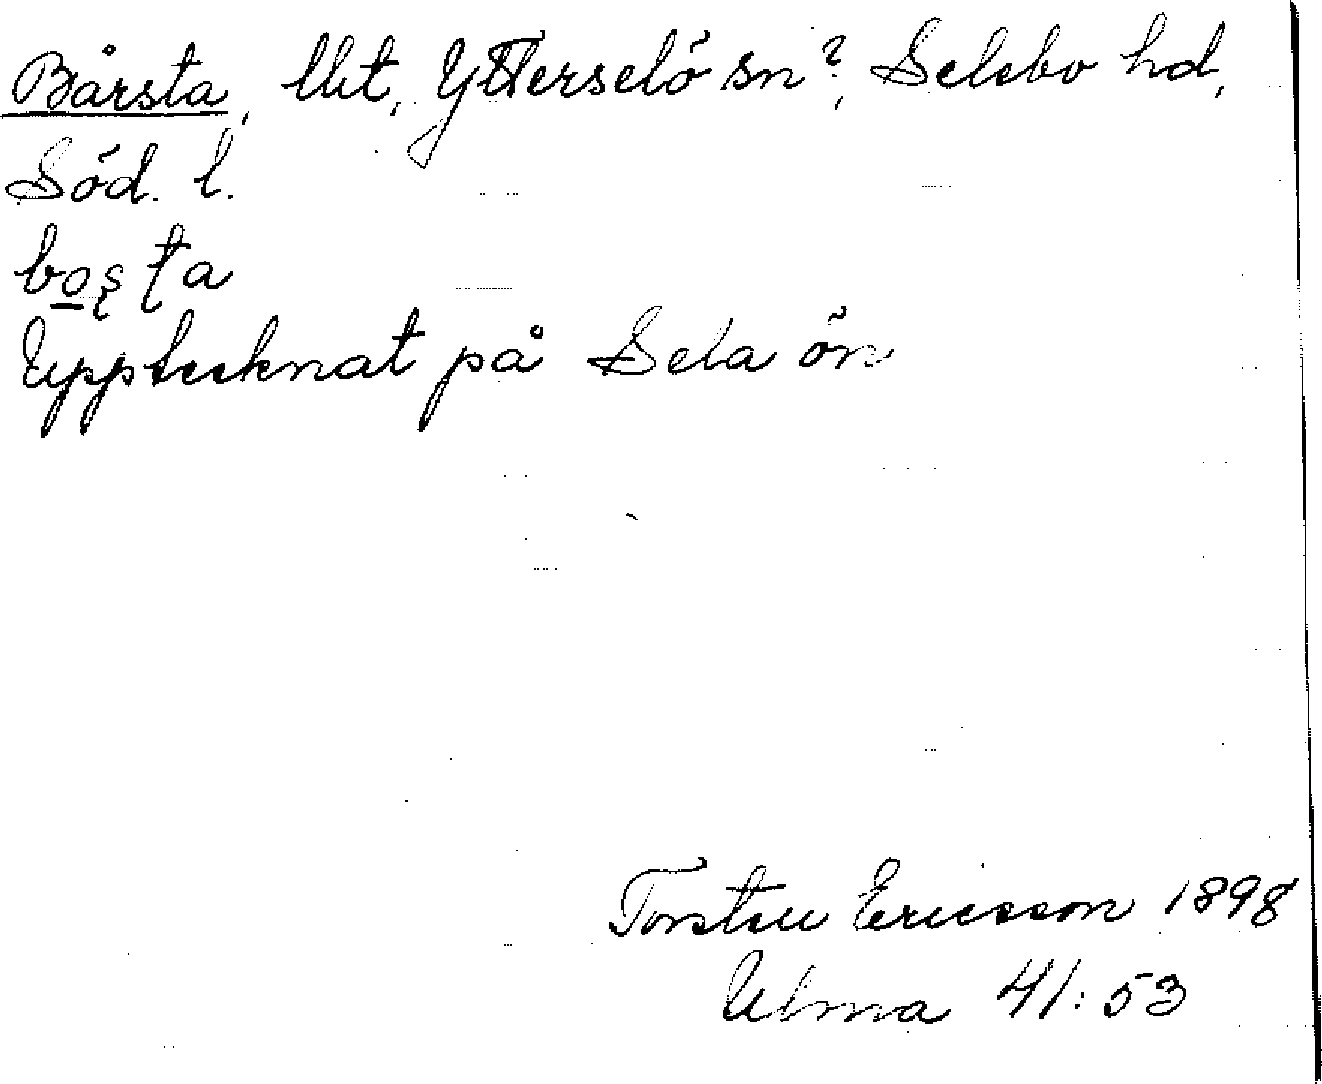 Bårsta, Ukt, Ytterselö sn?, Selebo hd,
Söd. l.
bo̲ʂʈa
Upptecknat på Sela ön
Torsten Ericsson 1898
Ulma 41:53